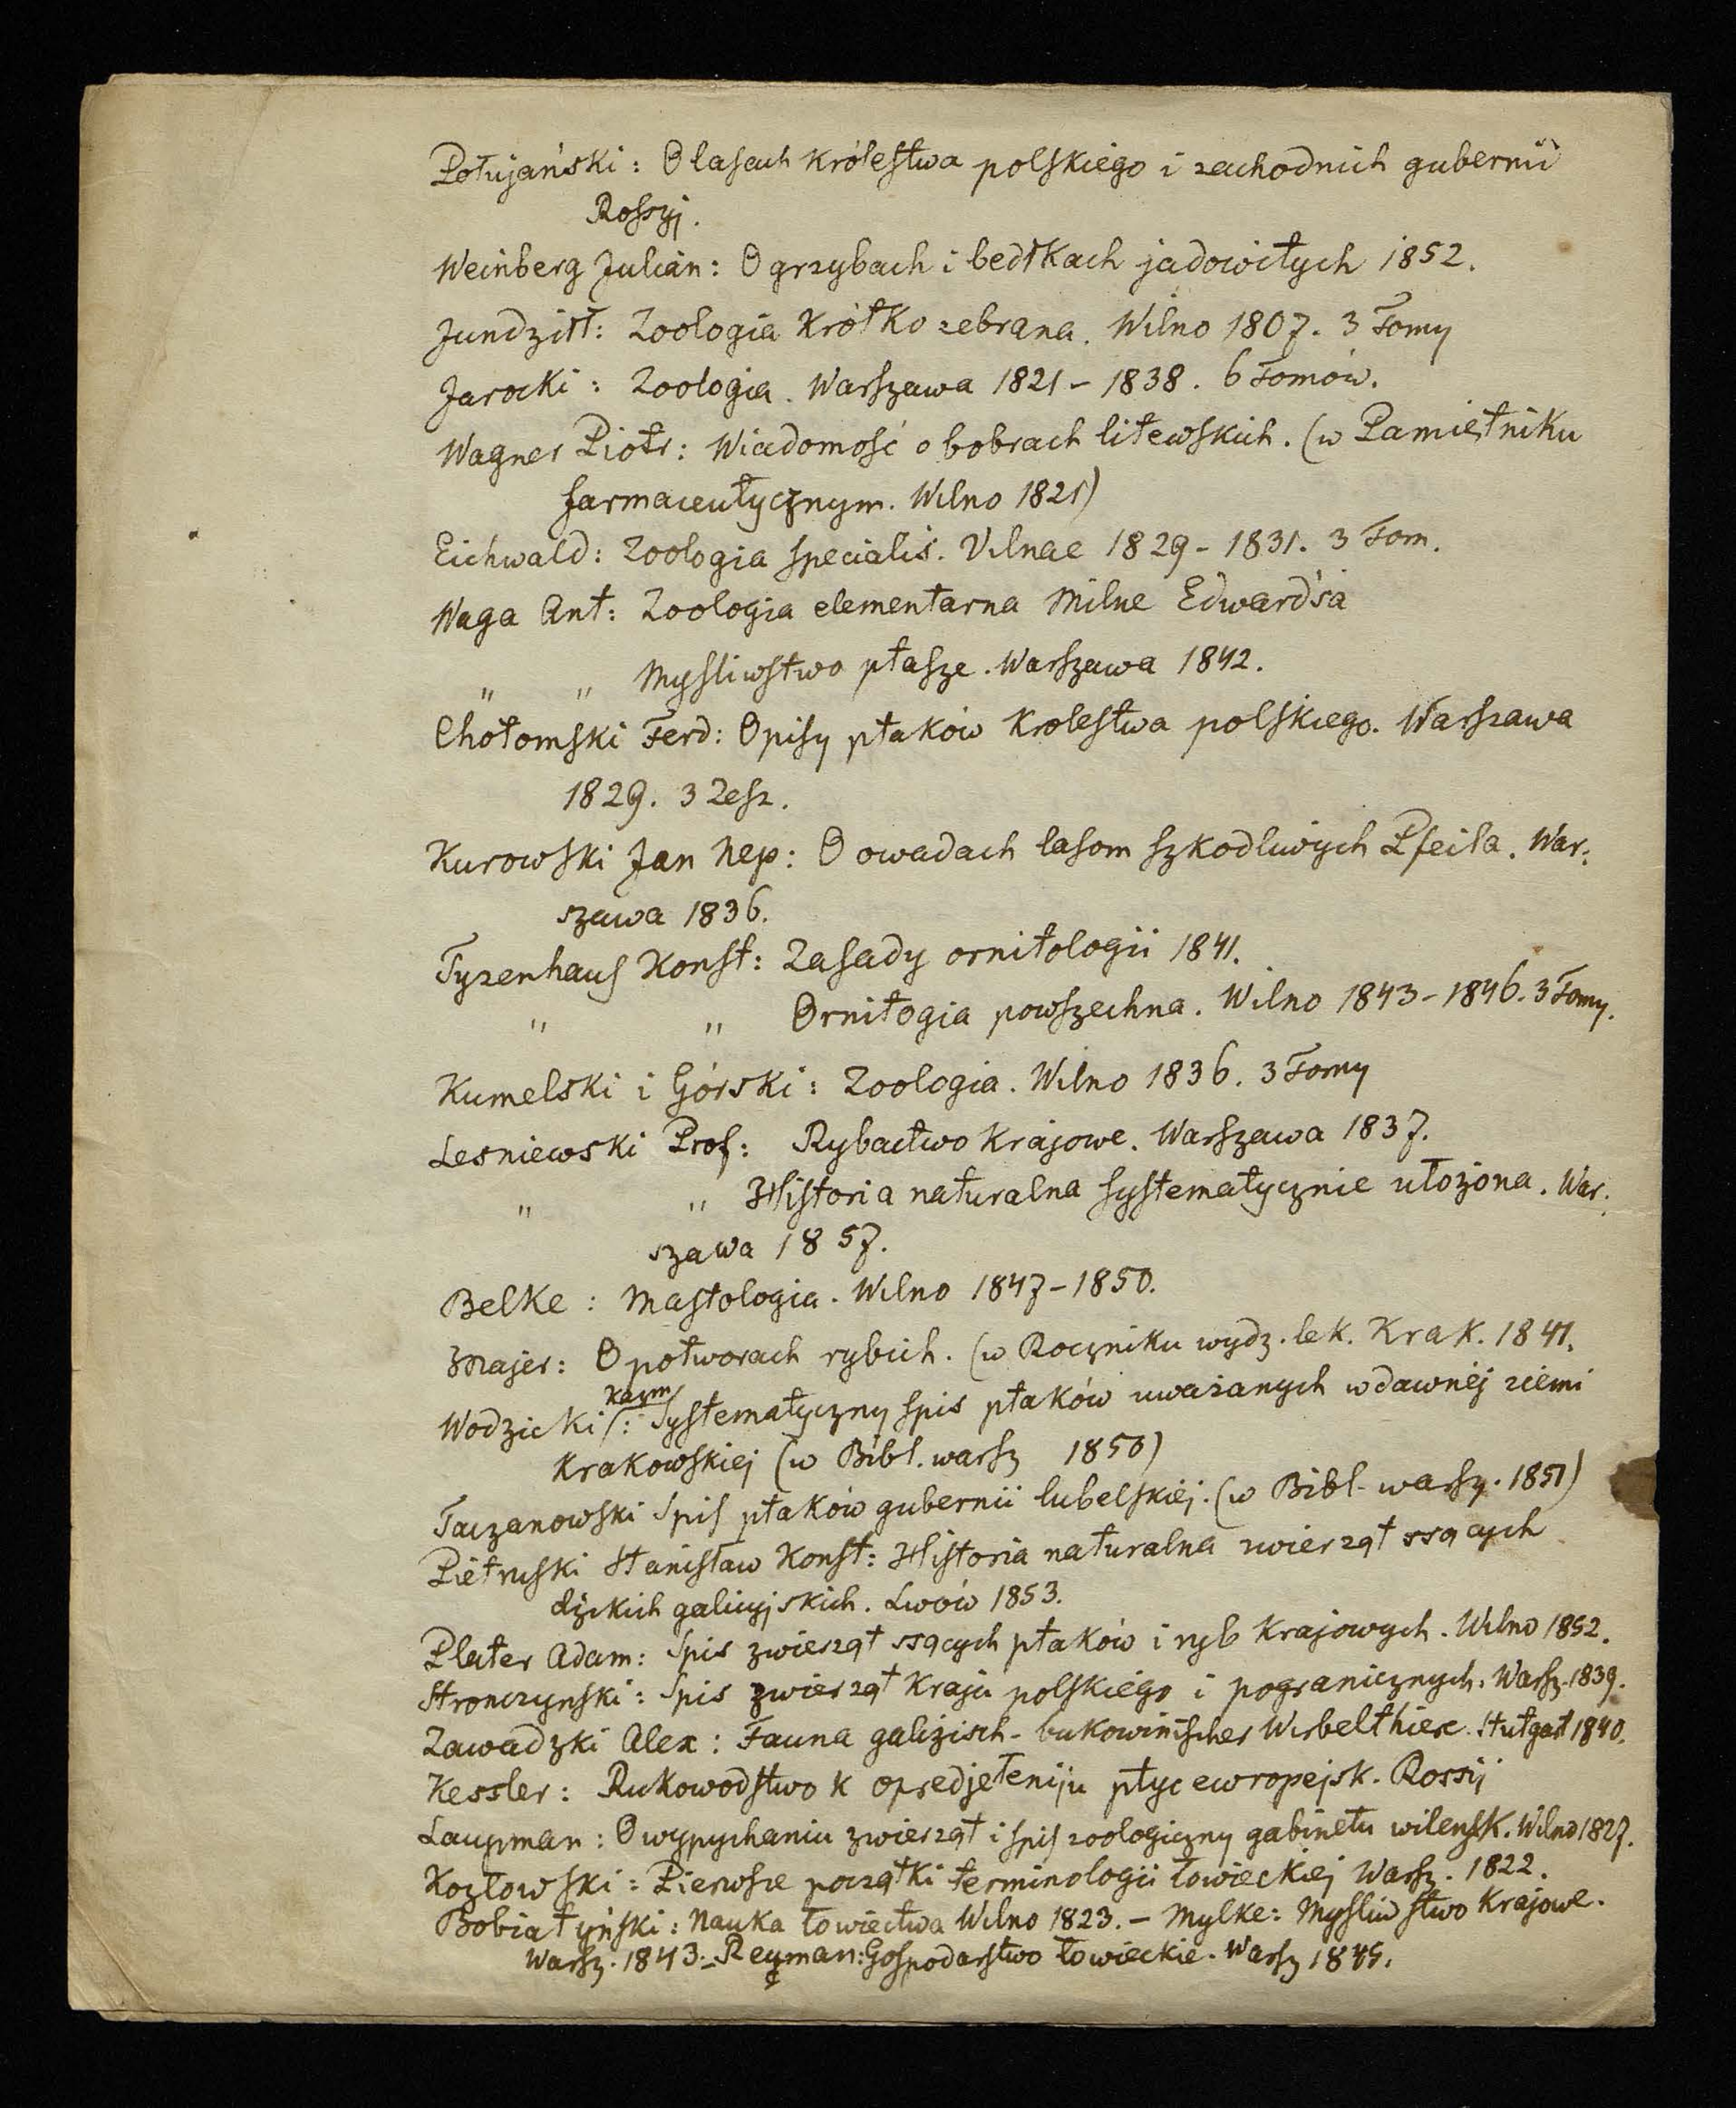 Połujański: O lasach królestwa polskiego i zachodnich gubernii
Rossyj.
Weinberg Julian: O grzybach i bedłkach jadowitych 1852.
Jundziłł: Zoologia krótko zebrana. Wilno 1807. 3 Tomy
Jarocki: Zoologia. Warszawa 1821–1838. 6 Tomów.
Wagner Piotr: Wiadomość o bobrach litewskich. (w Pamiętniku
farmaceutycznym. Wilno 1821)
Eichwald: Zoologia specialis. Vilnae 1829–1831. 3 Tom.
Waga Ant: Zoologia elementarna Milne Edwards'a
„ „ Mysliwstwo ptasze. Warszawa 1842.
Chotomski Ferd: Opisy ptaków Krolestwa polskiego. Warszawa
1829. 3 Zesz.
Kurowski Jan Nep: O owadach lasom szkodliwych Pfeila. War:
szawa 1836.
Tyzenhaus Konst: Zasady ornitologii 1841.
„ „ Ornitogia powszechna. Wilno 1843–1846. 3 Tomy.
Kumelski i Górski: Zoologia. Wilno 1836. 3 Tomy
Lesniewski Prof: Rybactwo Krajowe. Warszawa 1837.
„ „ Historia naturalna systematycznie ułożona. War:
szawa 1857.
Belke: Mastologia. Wilno 1847–1850.
Majer: O potworach rybich. (w Roczniku wydz. lek. Krak. 1841.
Wodzicki Kazm: Systematyczny spis ptaków uważanych w dawnéj ziemi
Krakowskiej (w Bibl. warsz 1850)
Taczanowski Spis ptaków gubernii lubelskiéj. (w Bibl. warsz. 1851)
Pietruski Stanisław Konst: Historia naturalna zwierząt ssących
dzikich galicyjskich. Lwów 1853.
Plater Adam: Spis zwierząt ssących ptaków i ryb Krajowych. Wilno 1852.
Stronczynski: Spis zwierząt Kraju polskiego i pogranicznych. Warsz. 1839.
Zawadzki Alex: Fauna galizisch-bukowinischer Wirbelthiere. Stutgart 1840.
Kessler: Rukowodstwo k opredjeleniju ptyc ewropejsk. Rossij
Laupman: O wypychaniu zwierząt i spis zoologiczny gabinetu wilensk. Wilno 1827.
Kozłowski: Pierwsze początki terminologii łowieckiej Warsz. 1822.
Bobiatyński: Nauka łowiectwa Wilno 1823. – Mylke: Mysliwstwo Krajowe.
Warsz. 1843. – Reyman: Gospodarstwo łowieckie. Warsz 1845.